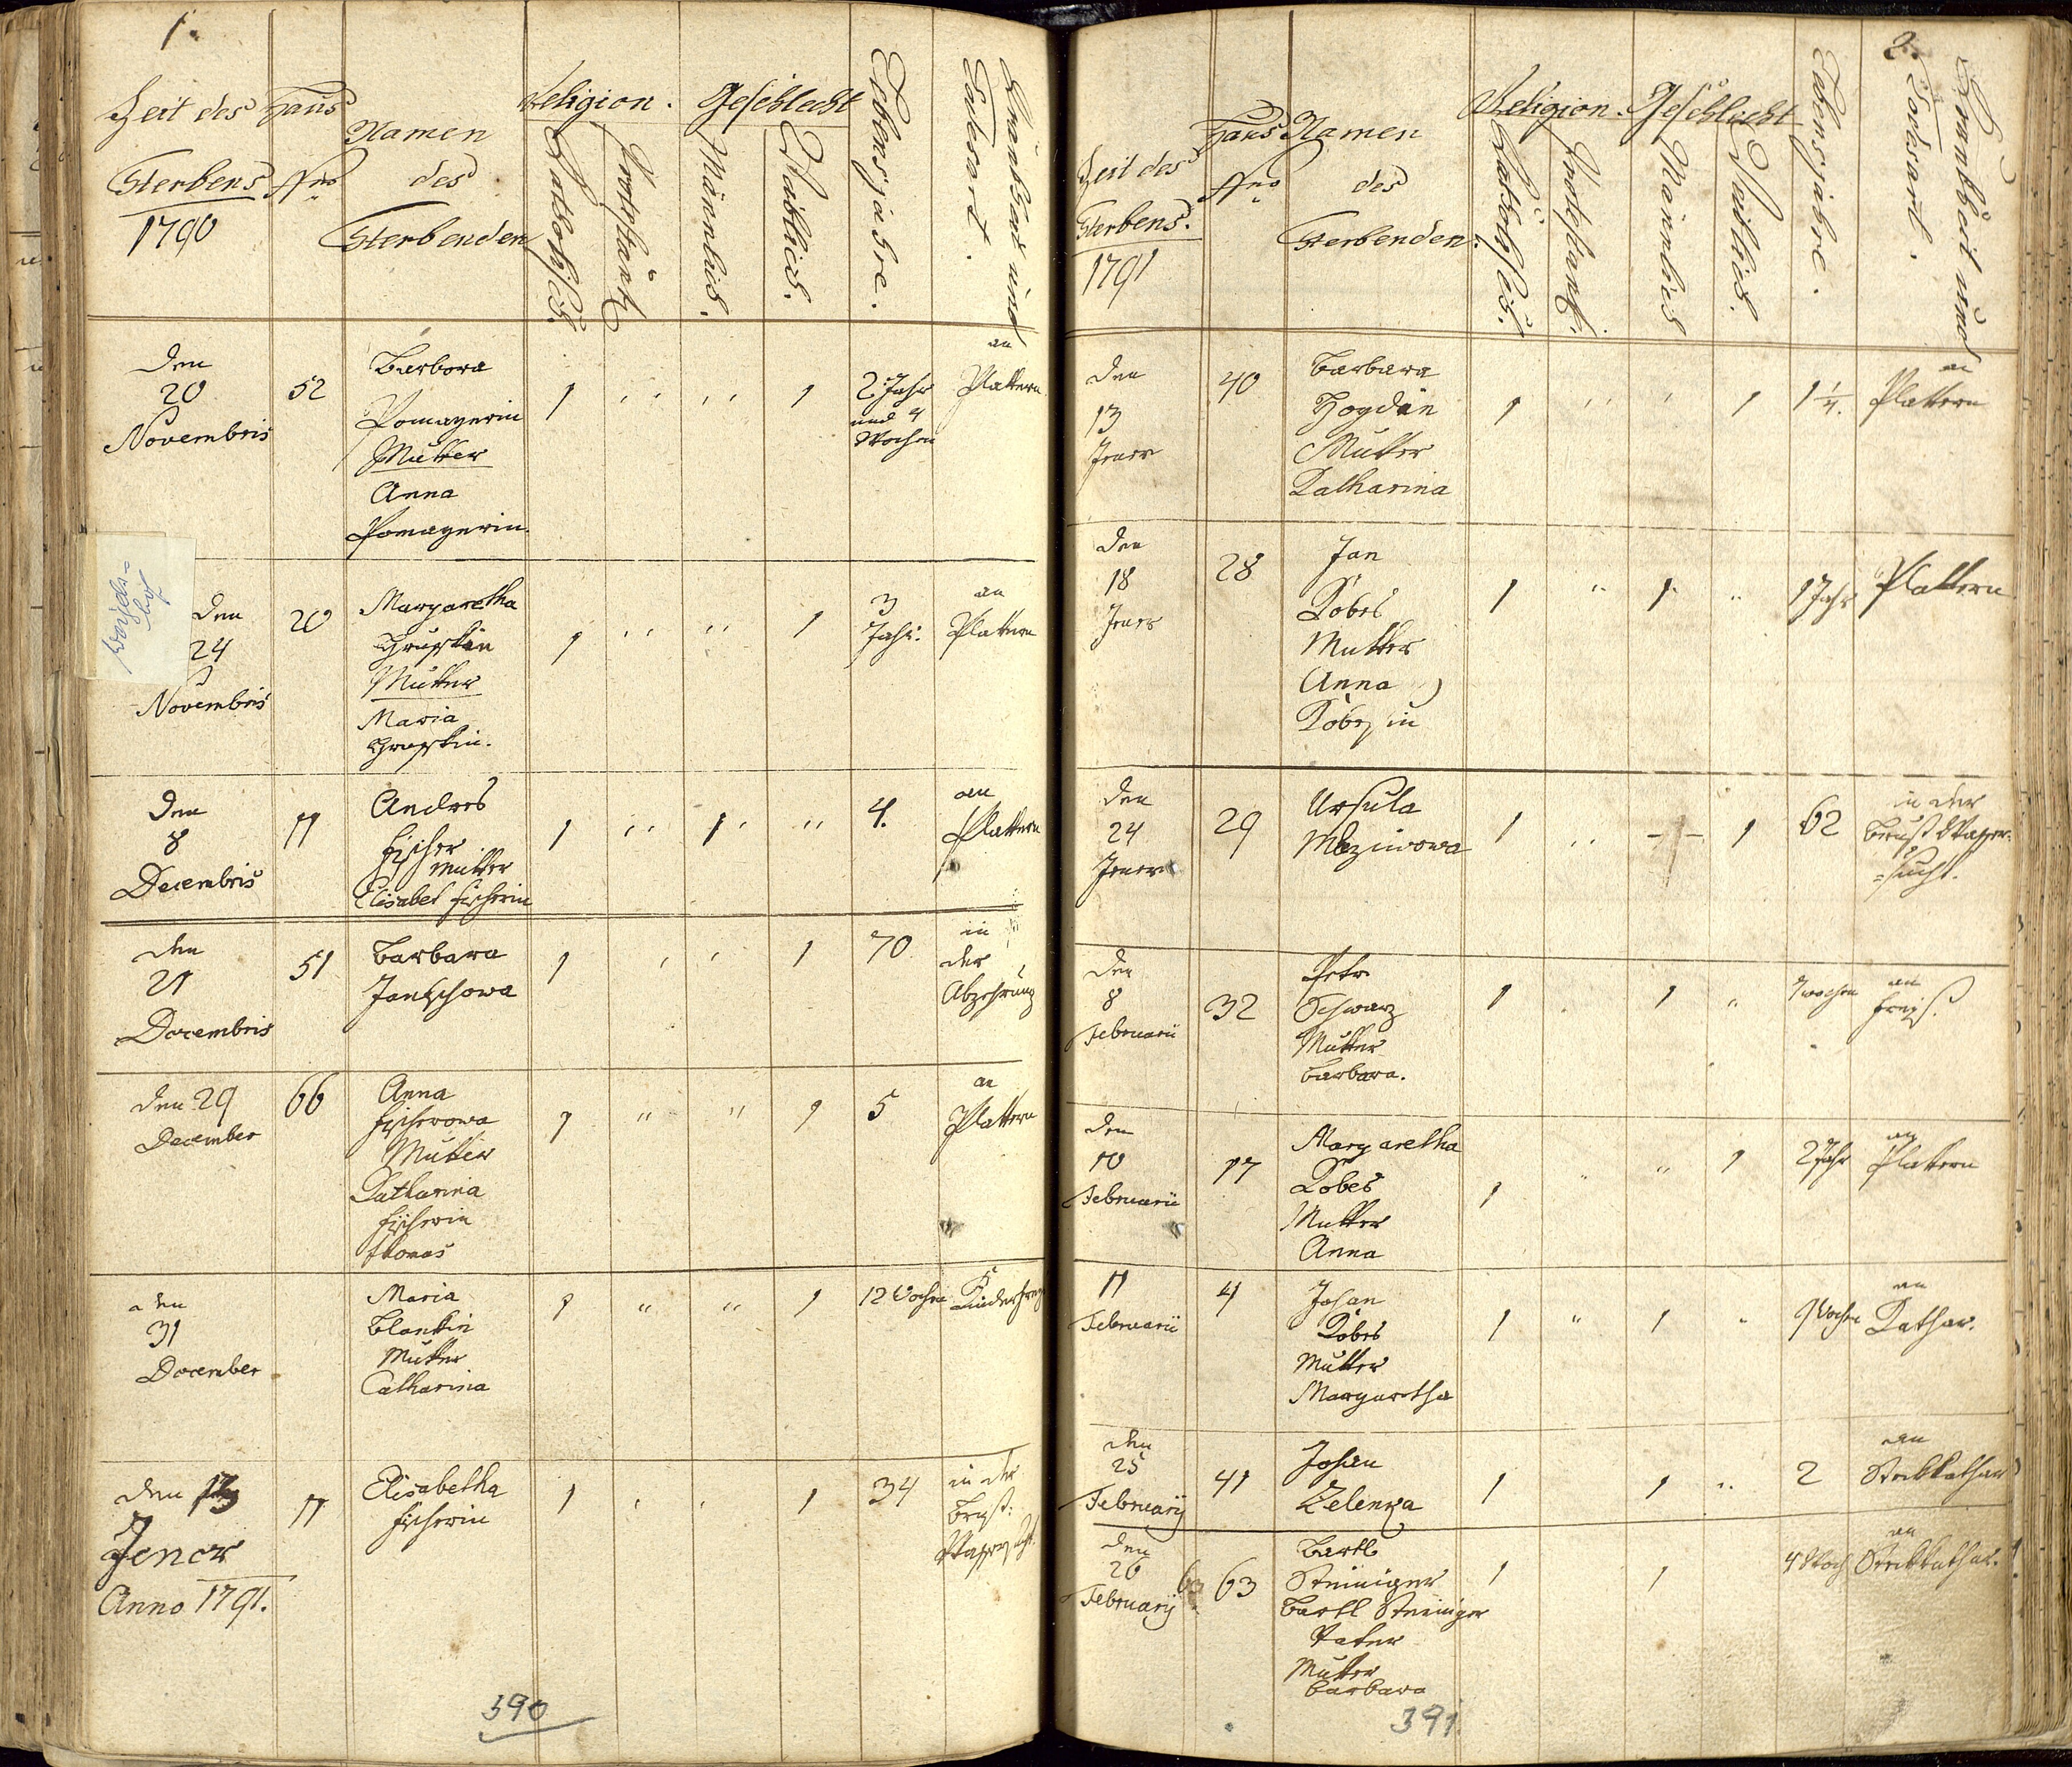 1.
Zeit des
Sterbens
1790
Haus
Nro
Namen
des
Sterbenden
Religion.
Katholisch.
Protestant
Geschlecht
Männlich.
Weiblich.
Lebensjahre.
Krankheit und
Todesart.
den
20
Novembris
52
Barbora
Pomagerin
Mutter
Anna
Pomagerin.
1
1
2 Jahr
und 4
Wochen
an
Plattern
den
24
Novembris
20
Margaretha
Mutter
Maria
1
1
3
Jahr.
an
Plattern
den
8
Decembris
11
Andres
Fischer
Mutter
Elisabet Fischerin
1
1
4.
an
Plattern
den
21
Decembris
51
Barbara
Jantschowa
1
1
70
in
der
Abzehrung
den 29
December
66
Anna
Fischerowa
Mutter
Katharina
Fischerin
Thomas
1
1
5
an
Plattern
den
31
December
Maria
Blankin
Mutter
Catharina
1
1
12 Wochen
den 13
Jener
Anno 1791.
11
Elisabetha
Fischerin
1
1
34
in der
Brust:
390
2.
Zeit des
Sterbens.
1791
Haus
Nro
Namen
des
Sterbenden.
Religion.
Katholisch.
Protestant.
Geschlecht
Männlich
Weiblich.
Lebensjahre.
Krankheit und
Todesart.
den
13
Jener
40
Barbara
Hogdan
Mutter
Katharina
1
1
1 1/4.
an
Plattern
den
18
Jener
28
Jan
Kobes
Mutter
Anna
Kobesin
1
1
1 Jahr
Plattern
den
24
Jener
29
Ursula
1
1
62
in der
Brust Wasser-
=sucht.
den
8
Februarii
32
Petr
Schwarz
Mutter
Barbara.
1
1
Wochen
an
Freiß.
den
10
Februarii
17
Margaretha
Kobes
Mutter
Anna
1
1
2 Jahr
an
Plattern
11
Februarii
4
Johan
Kobes
Mutter
Margaretha
1
1
Wochen
an
Kathar.
den
25
Februarij
41
Johan
Zelenka
1
1
2
an
Steckkathar
den
26
Februarij
63
Bartl
Steiniger
Bartl Steiniger
Vater
Mutter
Barbara
1
1
4 Woch
an
Steckkathar.
391